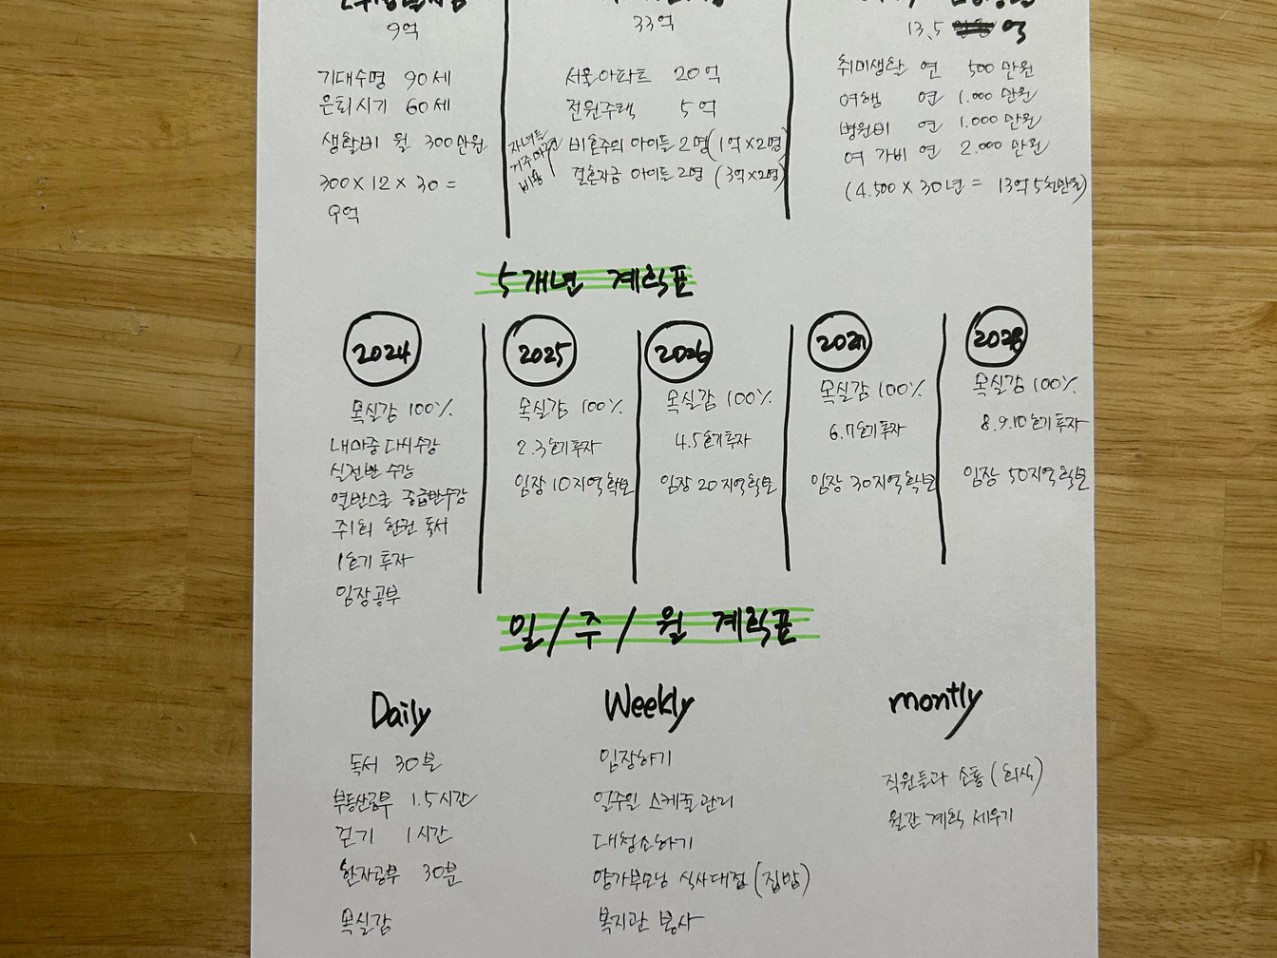 9억
기대수명 90세
은퇴시기 60세
생활비 월 300만원
300 × 12 × 30 =
9억
33억
서울아파트 20억
전원주택 5억
자녀들
비용
비혼주의 아이들 2명 (1억×2명)
결혼자금 아이들 2명 (3억×2명)
13.5 억
취미생활 연 500만원
여행 연 1.000만원
병원비 연 1.000만원
여가비 연 2.000만원
(4.500 × 30년 = 13억 5천만원)
5개년 계획표
2024
목실감 100%
내마중 다시수강
실전반 수강
열반스쿨 중급반수강
주1회 한권 독서
1호기 투자
임장공부
2025
목실감 100%
2.3호기 투자
임장 10지역 확보
2026
목실감 100%
4.5호기 투자
임장 20지역 확보
2027
목실감 100%
6.7호기 투자
임장 30지역 확보
2028
목실감 100%
8.9.10호기 투자
임장 50지역 확보
일/주/월 계획표
Daily
독서 30분
부동산공부 1.5시간
걷기 1시간
한자공부 30분
목실감
Weekly
임장하기
일주일 스케줄관리
대청소하기
양가부모님 식사대접 (집밥)
복지관 봉사
montly
직원들과 소통 (회식)
월간계획 세우기